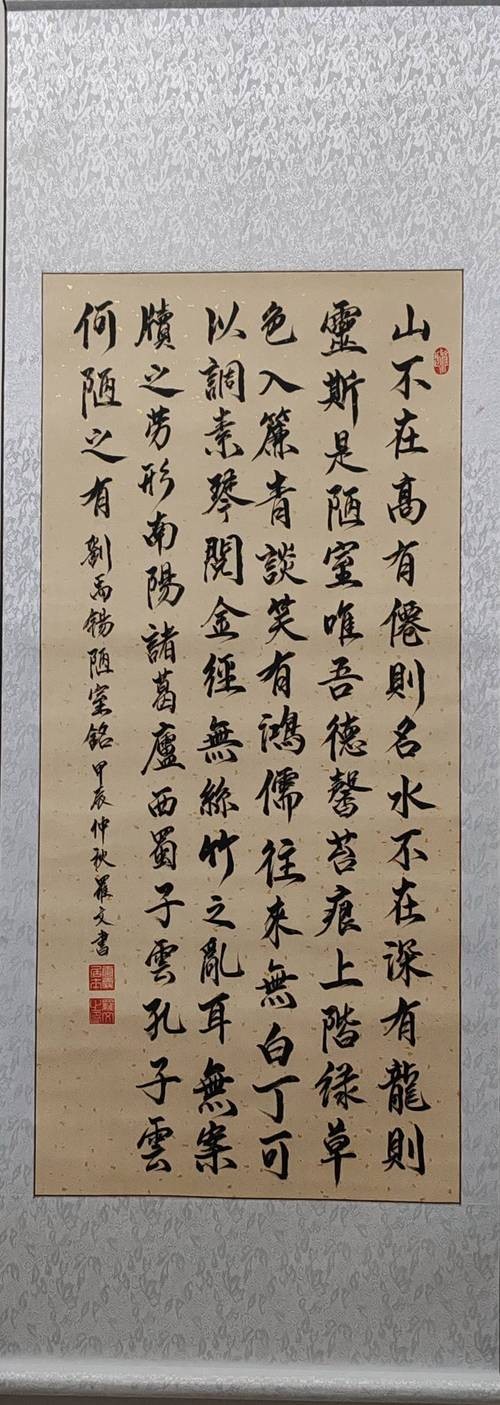 山不在高有僊則名水不在深有龍則
靈斯是陋室唯吾德馨苔痕上階緑草
色入簾青談笑有鴻儒往来無白丁可
以調素琴閱金經無絲竹之亂耳無案
牘之勞形南陽諸葛廬西蜀子雲孔子雲
何陋之有劉禹錫陋室銘甲辰仲秋羅文書